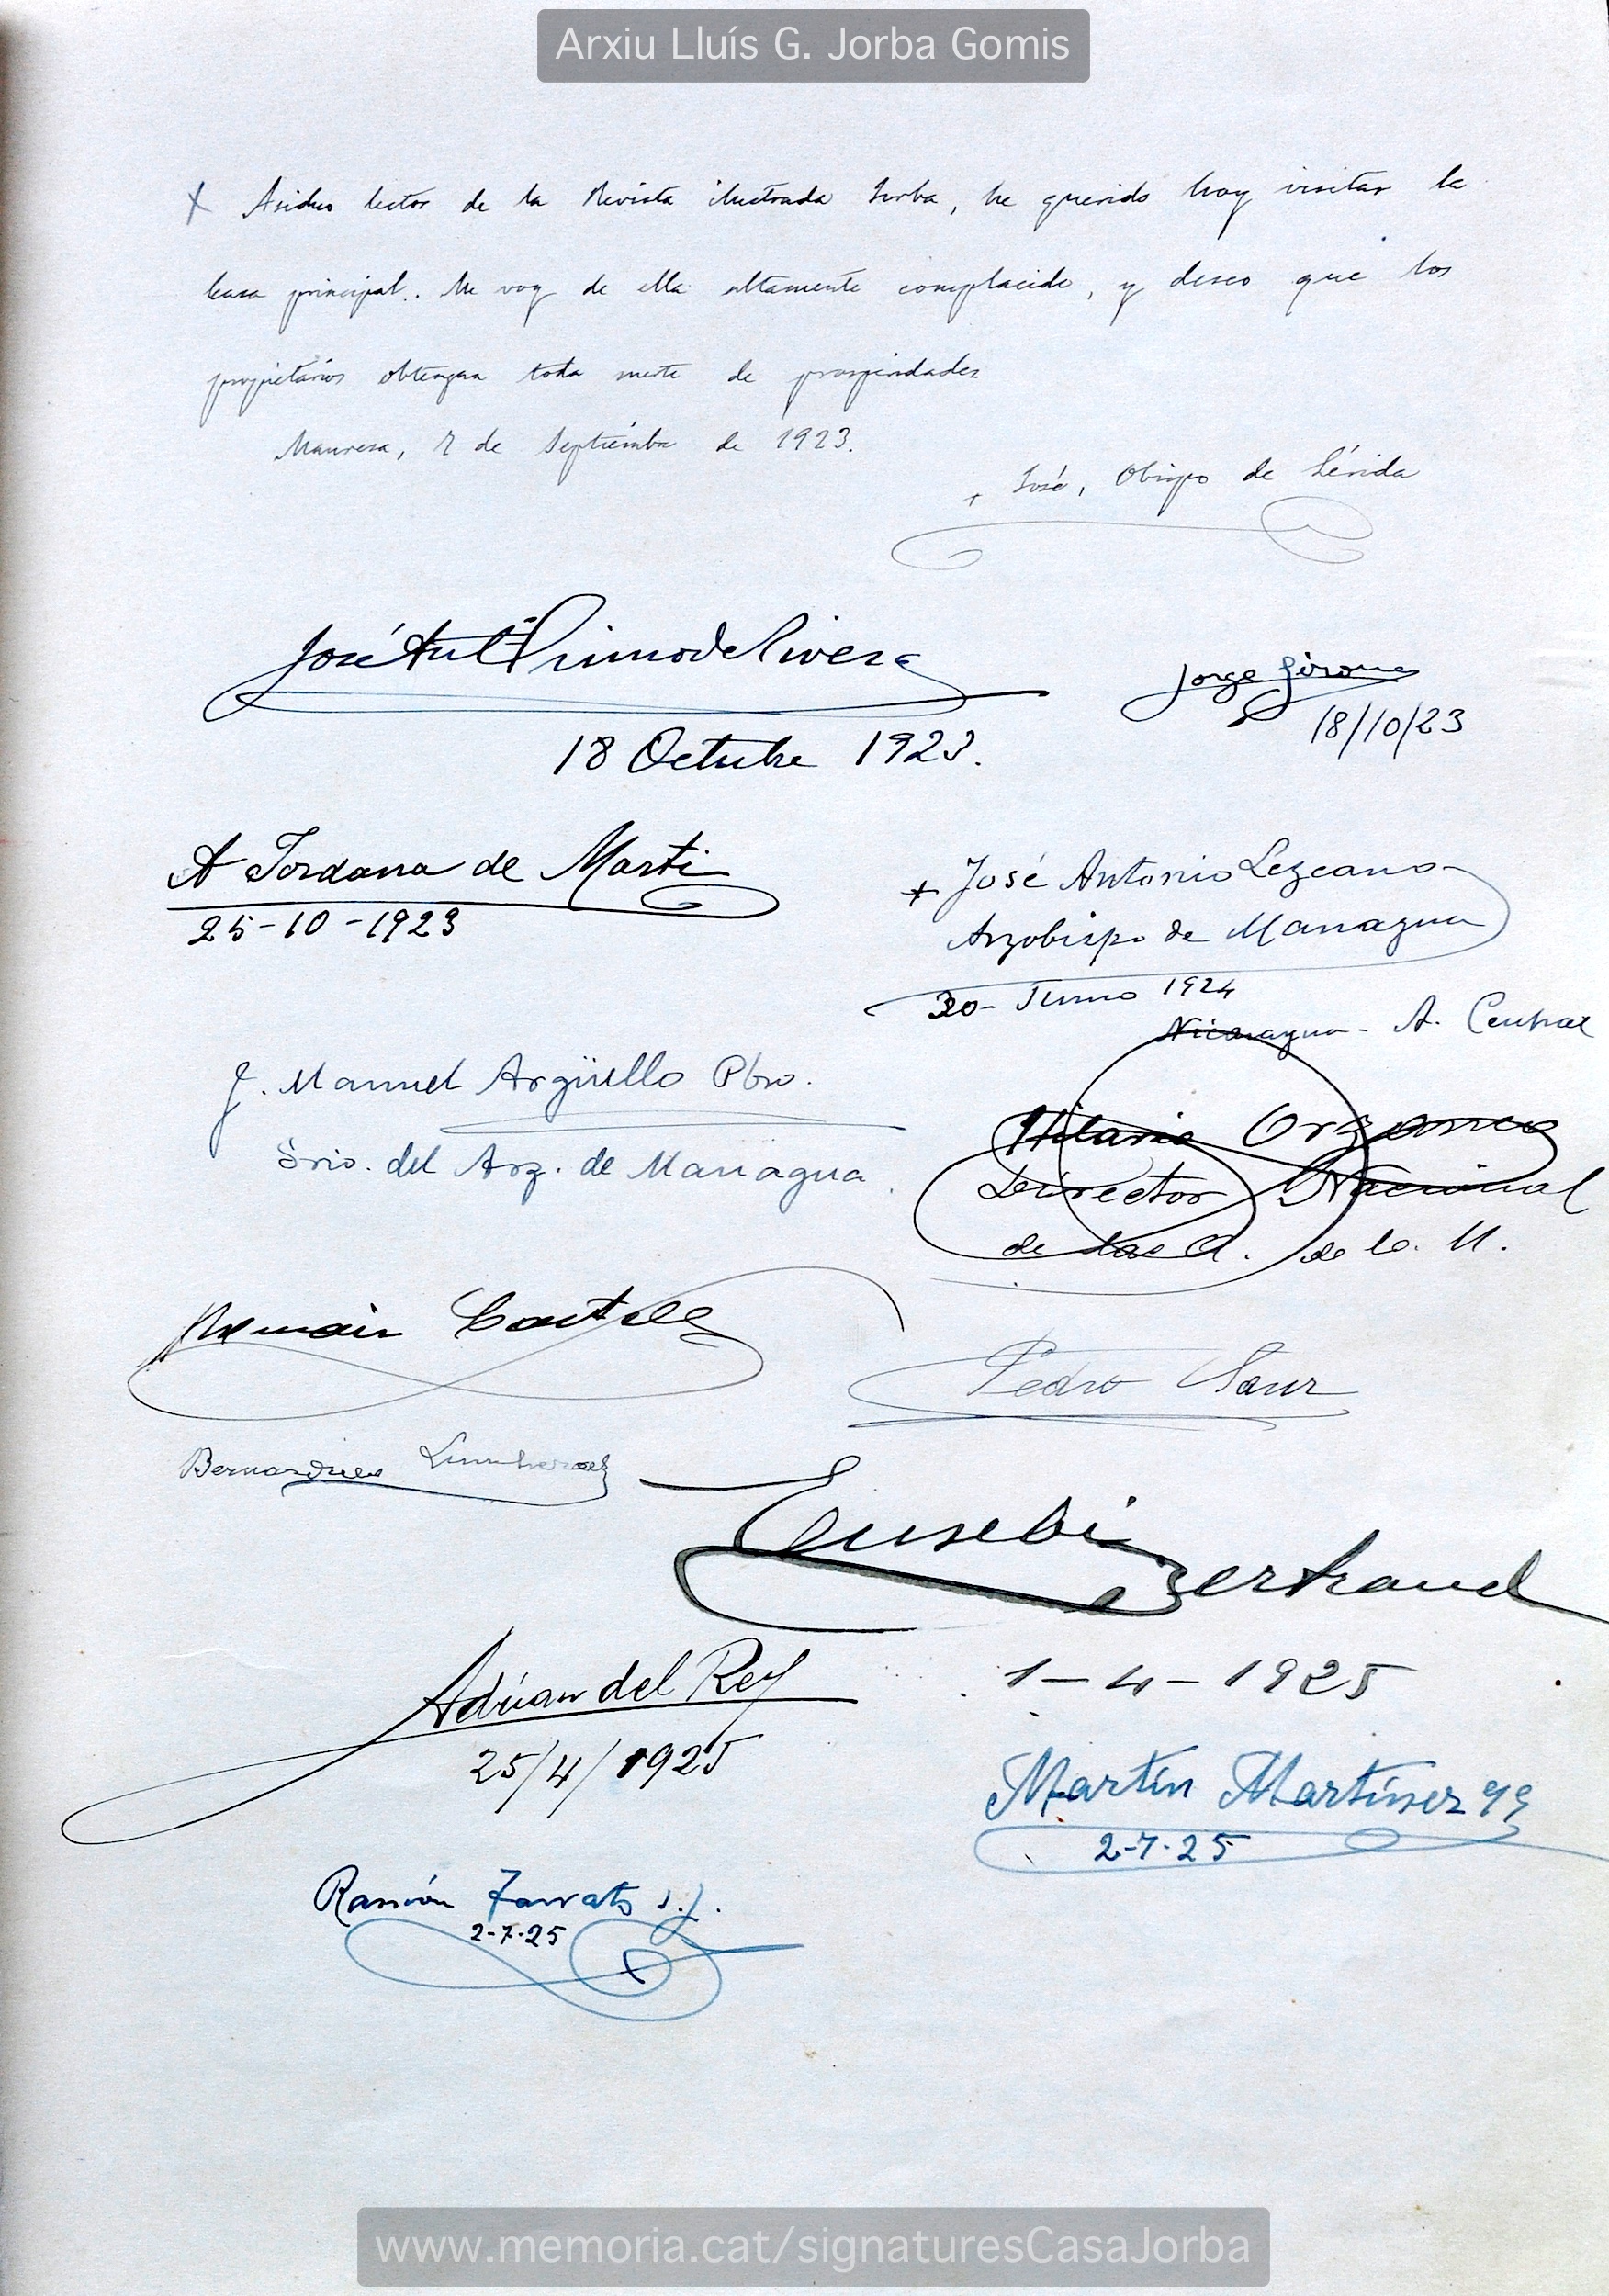 Arxiu Lluís G. Jorba Gomis
Asiduo lector de la Revista ilustrada Jorba, he querido hoy visitar la
Casa principal. Me voy de ella altamente complacido, y deseo que los
propietarios obtengan toda suerte de prosperidades
Manresa, 7 de Septiembre de 1923.
+ José, Obispo de Lérida
José Antº Primo de Rivera
18 Octubre 1923.
Jorge Girona
18/10/23
A Jordana de Marti
25-10-1923
+ José Antonio Lezcano
Arzobispo de Managua
30- Junio 1924
Nicaragua - A. Central
J. Manuel Argüello Pbro.
Srio. del Arz. de Managua.
Hilario Orzanco
Director Nacional
de la
Pedro Sanz
Eusebi Bertrand
1-4-1925
Adrian del Rey
25/4/1925
Martín Martínez
2-7-25
Ramón s.j.
2-7-25
www.memoria.cat/signaturesCasaJorba